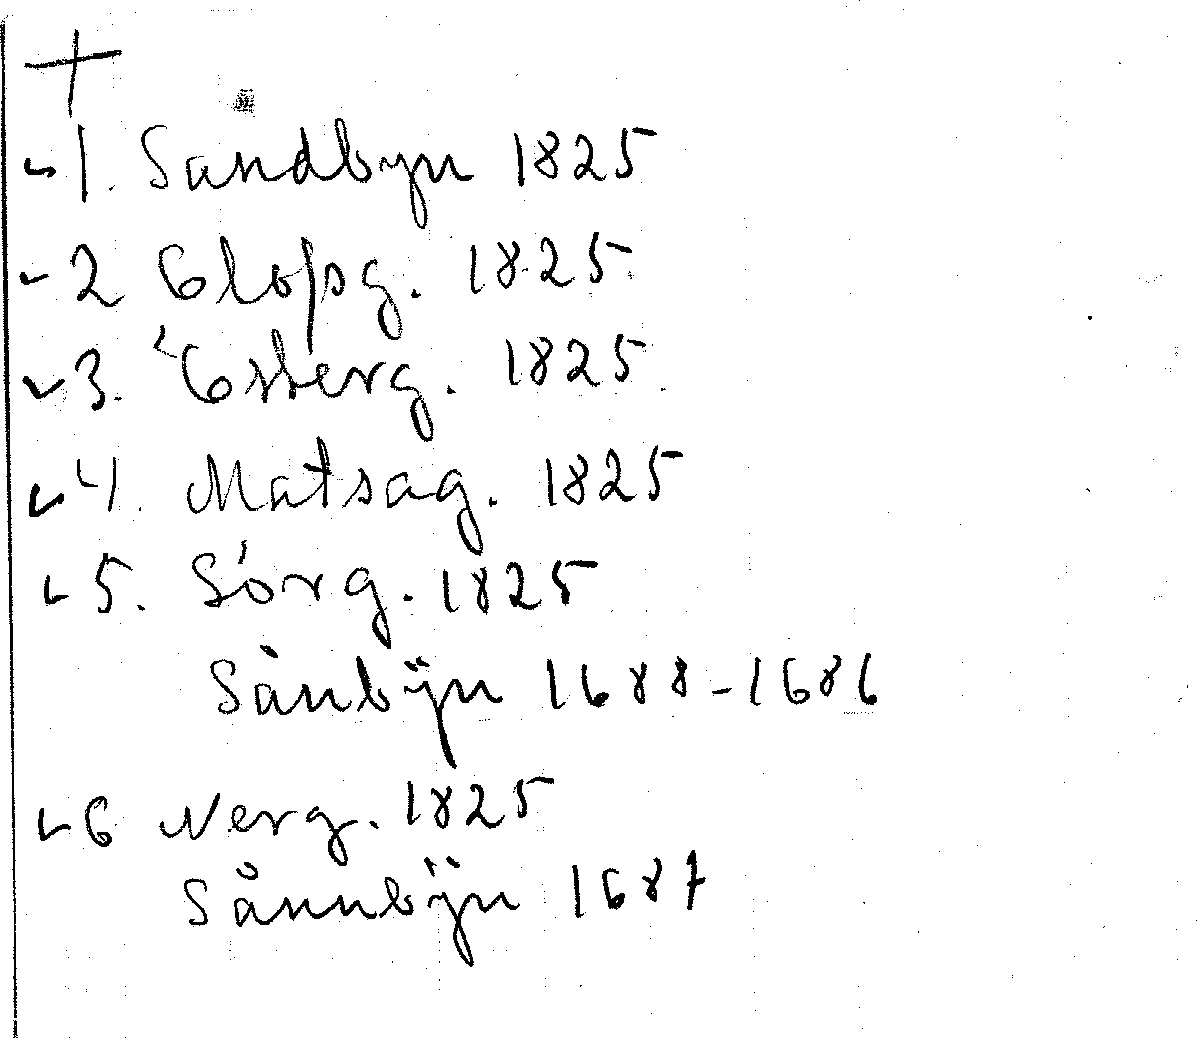 1. Sandbyn 1825
2 Olofsg. 1825
3. Ósberg. 1825
4. Matsag. 1825
5. Sórg. 1825
Sånbÿn 1688-1686
6 Nerg. 1825
Sånnbÿn 1687